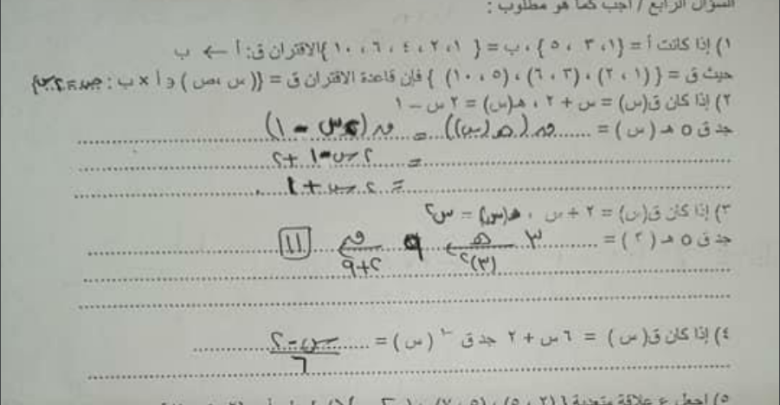 السؤال الرابع / أجب كما هو مطلوب :
١) إذا كانت أ = {١، ٣، ٥}، ب = {١، ٢، ٤، ٦، ١٠} الاقتران ق: أ ← ب
حيث ق = {(١، ٢)، (٣، ٦)، (٥، ١٠)} فإن قاعدة الاقتران ق = {(س، ص) ∈ أ × ب : ص = ٢س}
٢) إذا كان ق(س) = س + ٢، هـ(س) = ٢س - ١
جد ق ه هـ (س) = ق (هـ(س)) = ق (٢س - ١)
= ٢س - ١ + ٢
= ٢س + ١
٣) إذا كان ق(س) = ٢ + س، هـ(س) = س٢
جد ق ه هـ (٣) = ٣ هـ ← (٣)٢ ٩ ق ← ٢+٩ ١١
٤) إذا كان ق(س) = ٦س + ٢ جد ق-١(س) = س-٢
٦
٥) اجعل ع علاقة متعدية {(٢، ٥)، (٥، ٧)